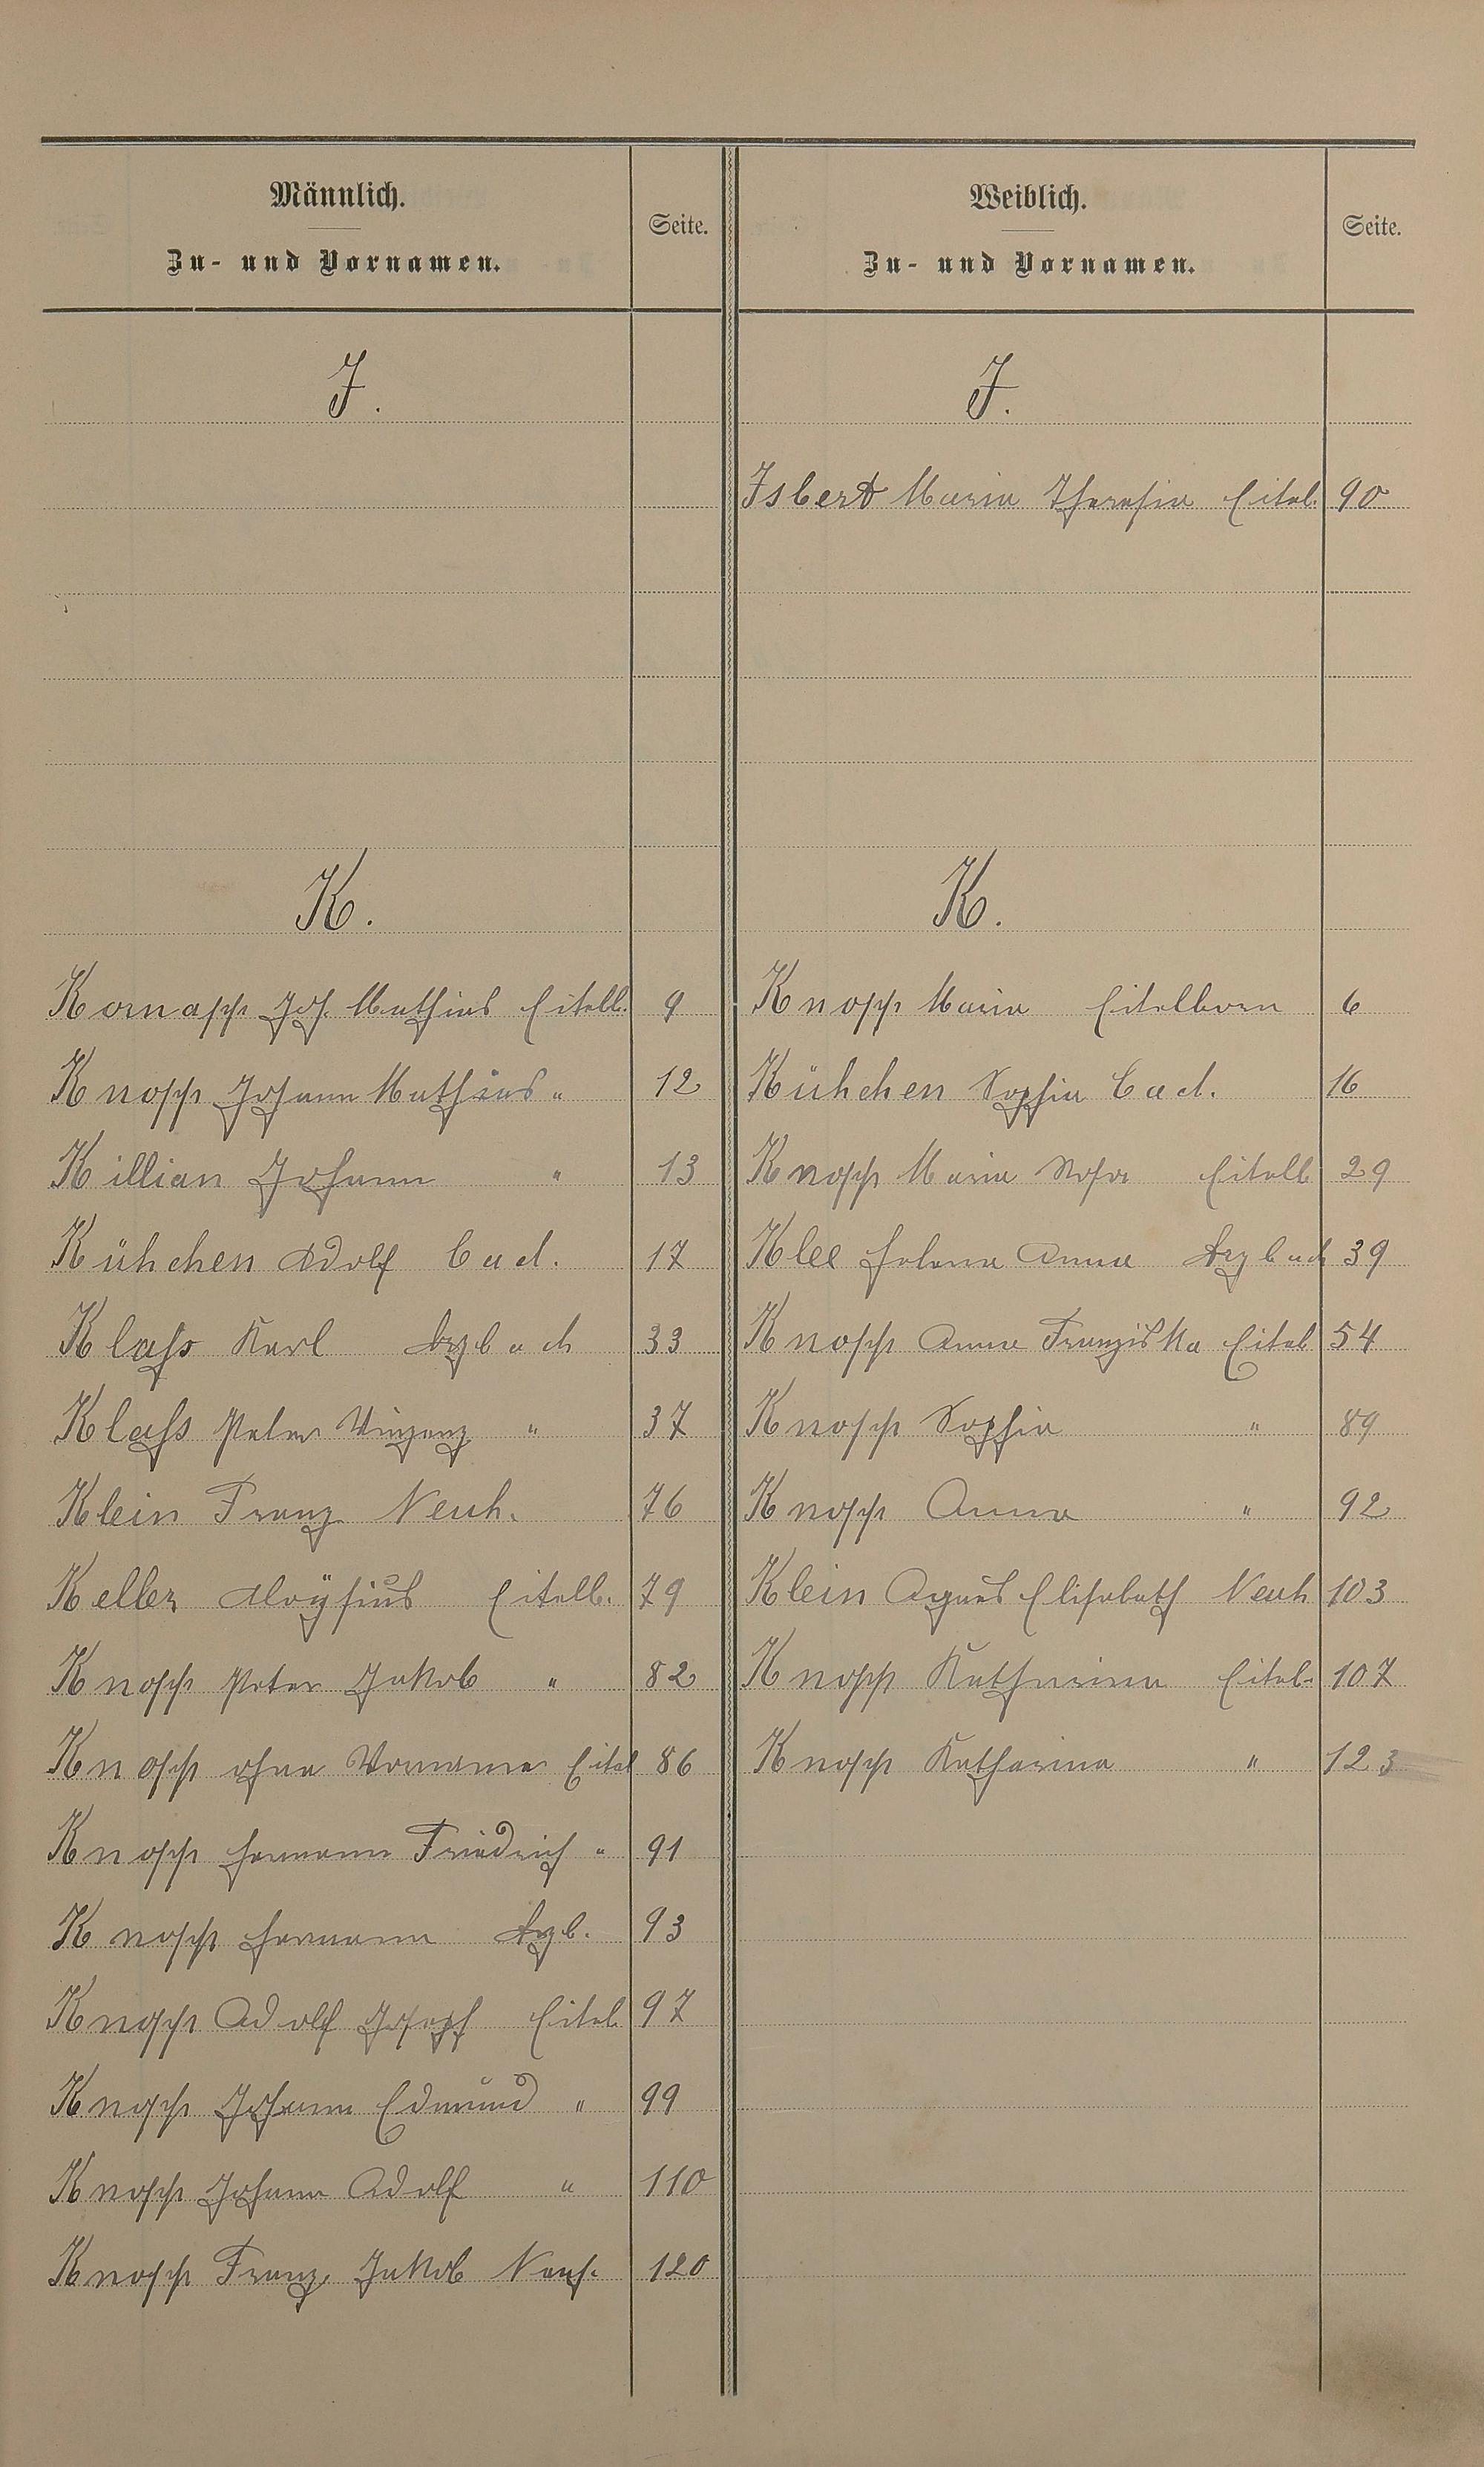 Männlich.
Zu- und Vornamen.
Seite.
Weiblich.
Zu- und Vornamen.
Seite.
J.
J.
Isbert Maria Theresia Eitelb. 90
K.
K.
Kornapp Joh. Mathias Eitelb. 9
Knopp Maria Eitelborn 6
Knopp Johann Mathias " 12
Kühchen Sophia Cad. 16
Killian Johann " 13
Knopp Maria Rosa Eitelb 29
Kühchen Adolf Cad. 17
Klee Helena Anna Arzbach 39
Klaß Karl Arzbach 33
Knopp Anna Franziska Eitelb 54
Klaß Peter Vinzenz " 37
Knopp Sophia " 89
Klein Franz Neuh. 76
Knopp Anna " 92
Keller Aloÿsius Eitelb. 79
Klein Agnes Elisabeth Neuh 103
Knopp Peter Jakob " 82
Knopp Katharina Eitelb. 107
Knopp ohne Vorname Eitel 86
Knopp Katharina " 123
Knopp Hermann Friedrich " 91
Knopp Hermann Arzb. 93
Knopp Adolf Joseph Eitelb 97
Knopp Johann Edmund " 99
Knopp Johann Adolf " 110
Knopp Franz Jakob Neuh. 120